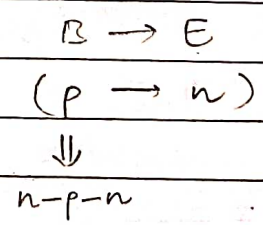 B → E
(p → n)
⇓
n-p-n